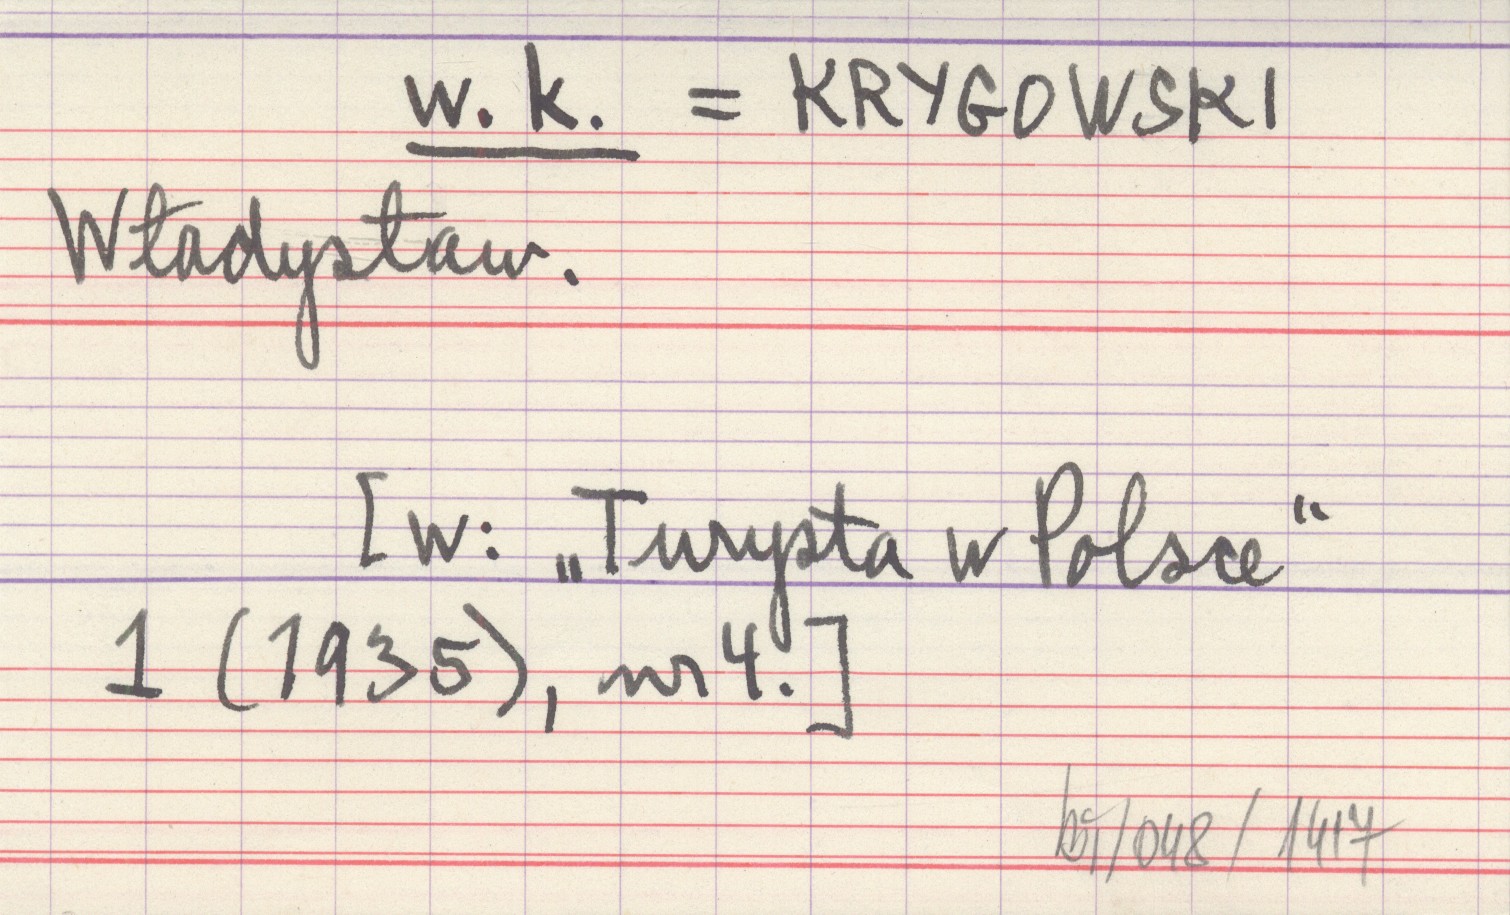 w. k. = KRYGOWSKI
Władysław.
[w: „Turysta w Polsce"
1 (1935), nr 4.]
bj/048/1417